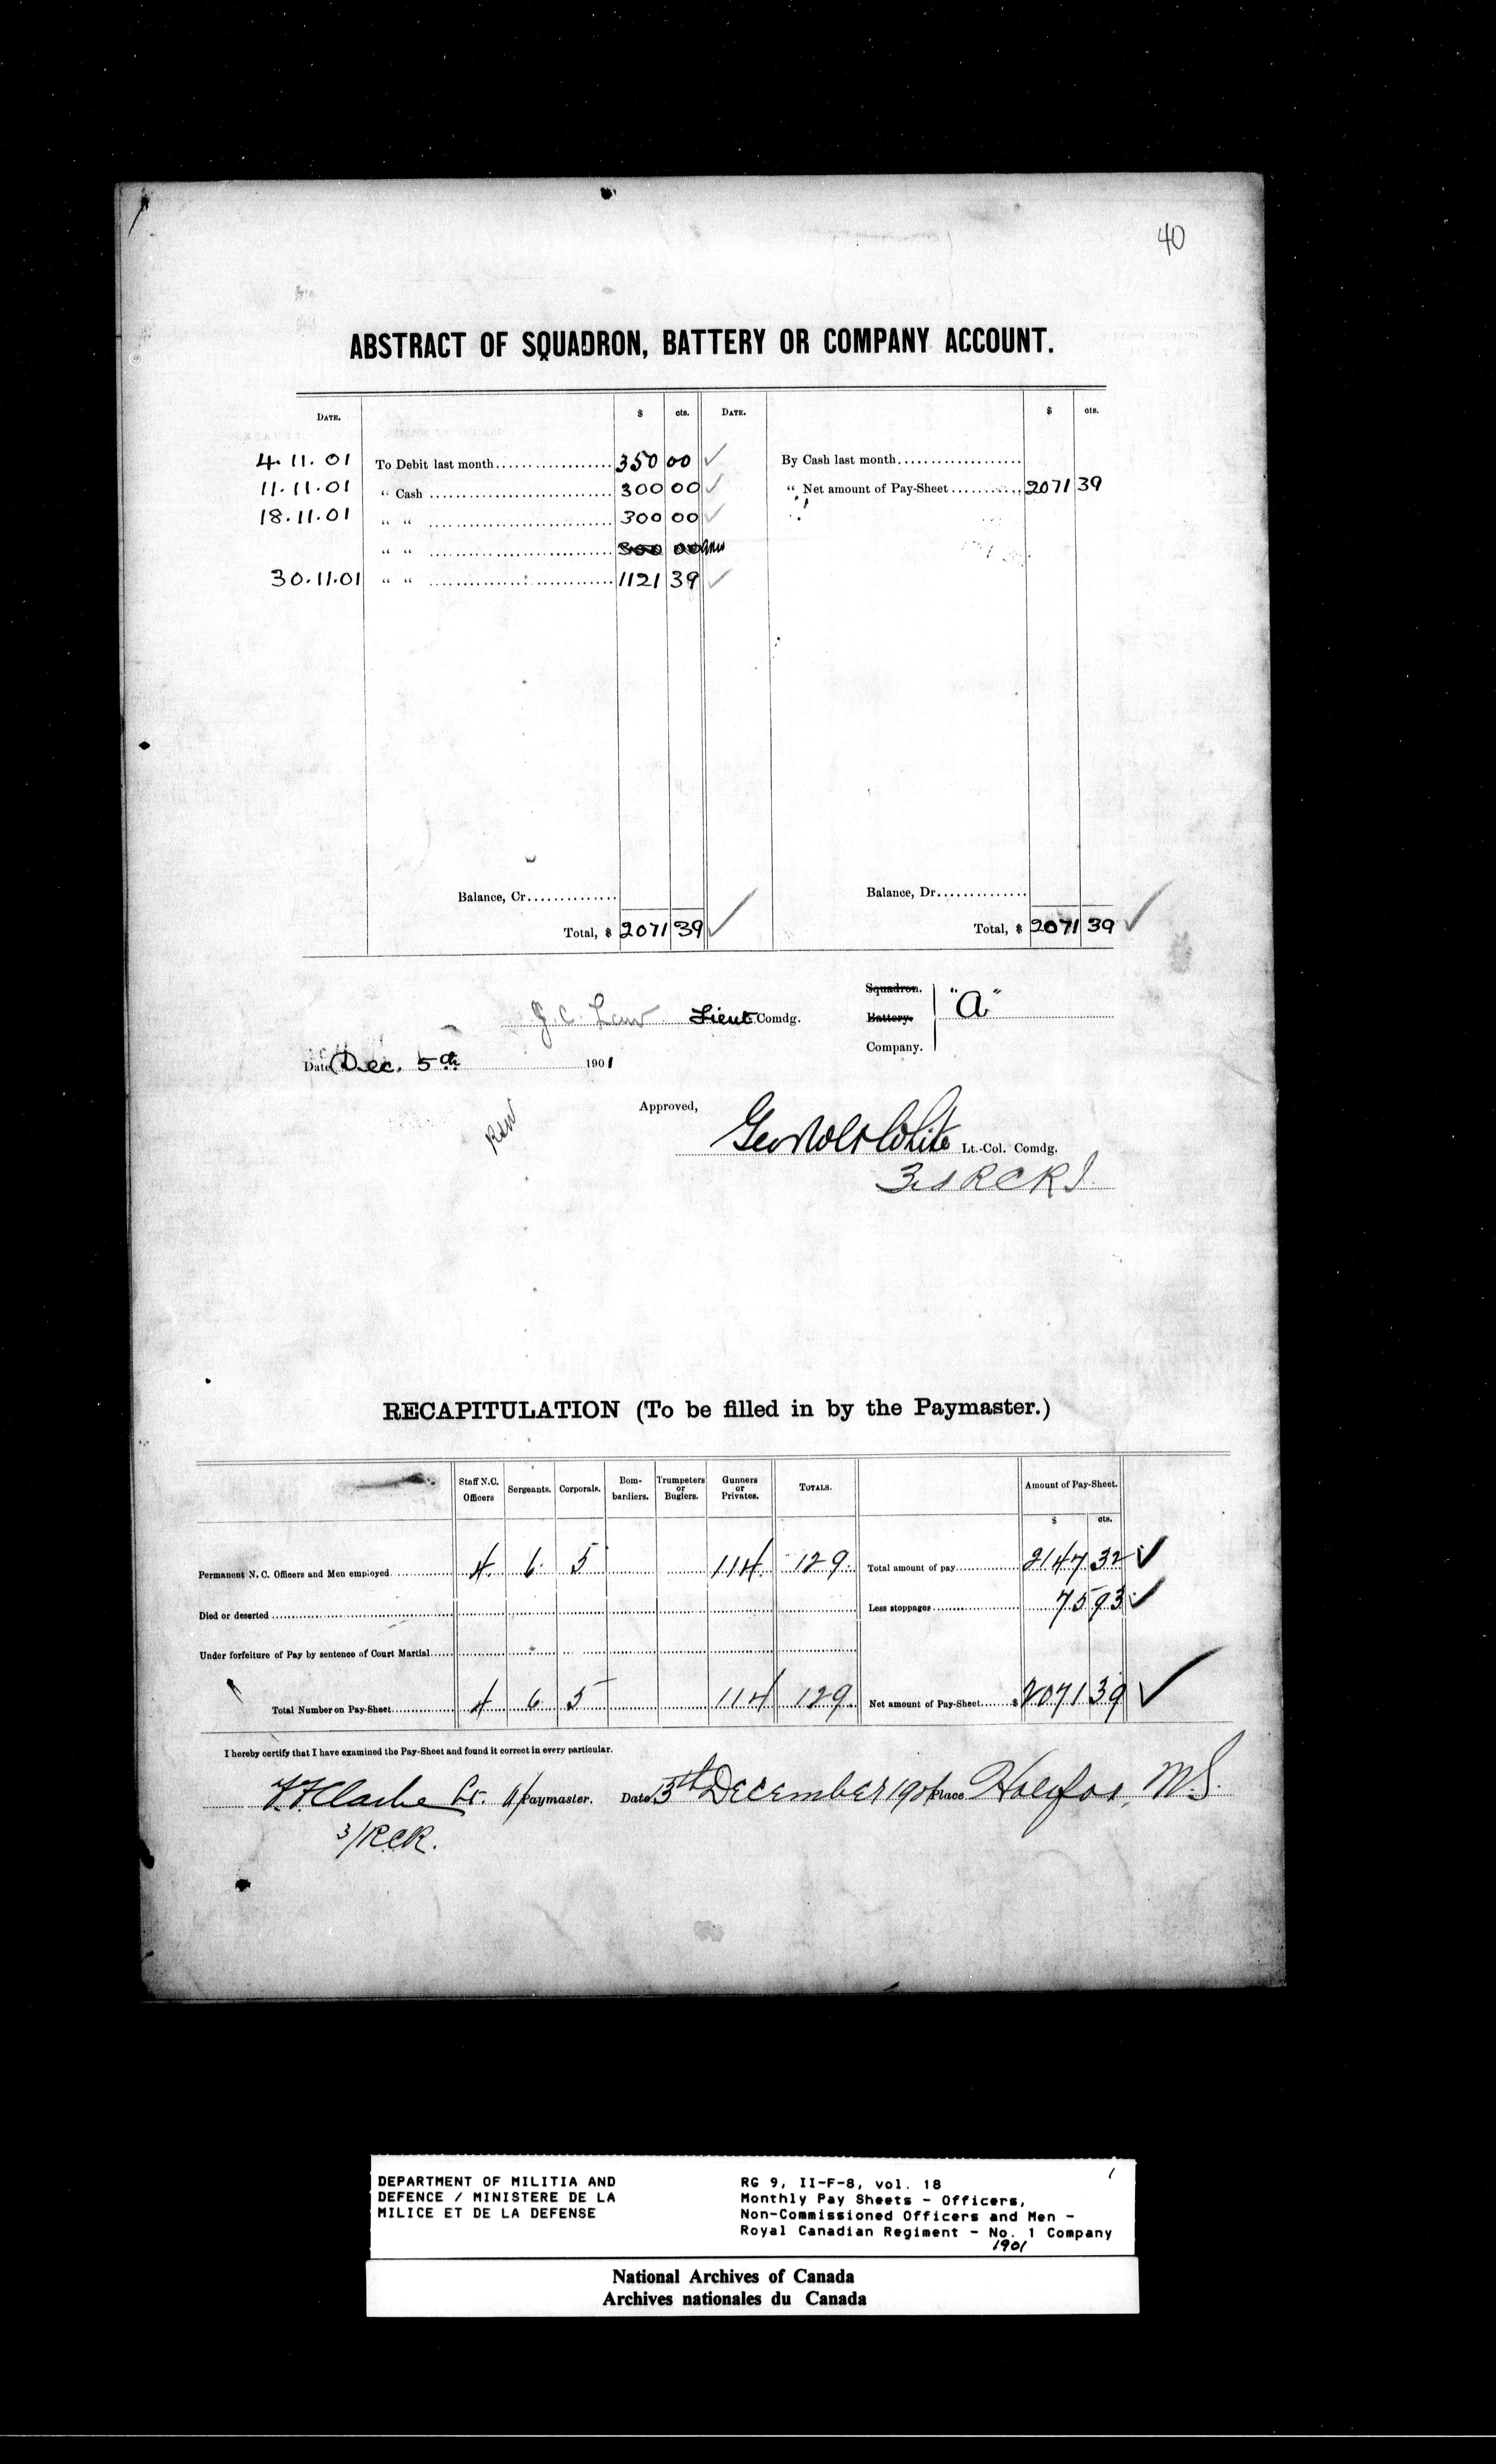 40
ABSTRACT OF SQUADRON, BATTERY OR COMPANY ACCOUNT.
DATE. $ cts. DATE. $ cts.
4.11.01 To Debit last month 350 00 ✓ By Cash last month
11.11.01 “ Cash 300 00 ✓ “ Net amount of Pay-Sheet 2071 39
18.11.01 “ “ 300 00 ✓
“ “ 300 00
30.11.01 “ “ 1121 39 ✓
Balance, Cr. Balance, Dr.
Total, $ 2071 39 ✓ Total, $ 2071 39 ✓
J. C. Law Lieut Comdg. Squadron. Battery. Company. "A"
Date Dec. 5th 1901
Approved,
Lt.-Col. Comdg.
3rd RCRI.
RECAPITULATION (To be filled in by the Paymaster.)
Staff N.C. Officers Sergeants. Corporals. Bombardiers. Trumpeters or Buglers. Gunners or Privates. TOTALS. Amount of Pay-Sheet.
$ cts.
Permanent N. C. Officers and Men employed 4 6 5 114 129 Total amount of pay 2147 32 ✓
Died or deserted Less stoppages 75 93 ✓
Under forfeiture of Pay by sentence of Court Martial
Total Number on Pay-Sheet 4 6 5 114 129 Net amount of Pay-Sheet $ 2071 39 ✓
I hereby certify that I have examined the Pay-Sheet and found it correct in every particular.
Clarke Lt. A/Paymaster. Date 5th December 1901 Place Halifax, N.S.
3/RCR.
DEPARTMENT OF MILITIA AND
DEFENCE / MINISTERE DE LA
MILICE ET DE LA DEFENSE
1
RG 9, II-F-8, vol. 18
Monthly Pay Sheets - Officers,
Non-Commissioned Officers and Men -
Royal Canadian Regiment - No. 1 Company
1901
National Archives of Canada
Archives nationales du Canada